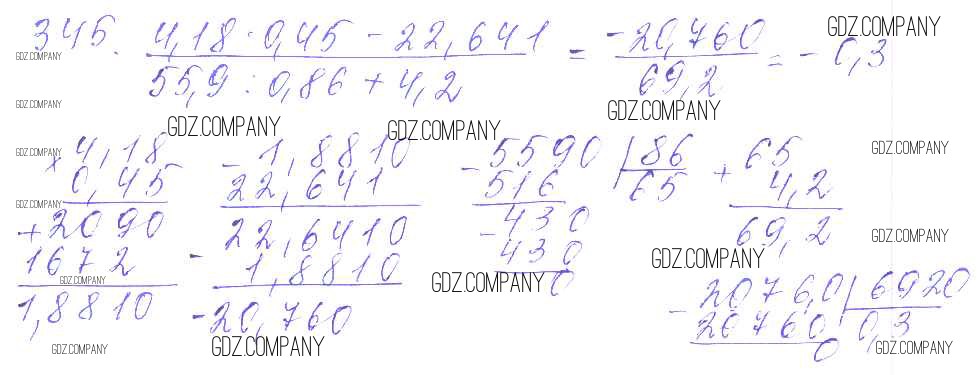 GDZ.COMPANY
345. 4,18 · 0,45 - 22,641 / 55,9 : 0,86 + 4,2 = -20,760 / 69,2 = -0,3
GDZ.COMPANY
GDZ.COMPANY
GDZ.COMPANY
GDZ.COMPANY GDZ.COMPANY
× 4,18 - 1,8810 - 5590 | 86 + 65
GDZ.COMPANY GDZ.COMPANY
0,45 22,641 516 65 4,2
GDZ.COMPANY
+ 2090 22,6410 430 69,2
GDZ.COMPANY
1672 - 1,8810 - 430
GDZ.COMPANY GDZ.COMPANY GDZ.COMPANY
1,8810 -20,760 0
- 2076,0 | 6920
20760 0,3
0
GDZ.COMPANY GDZ.COMPANY GDZ.COMPANY